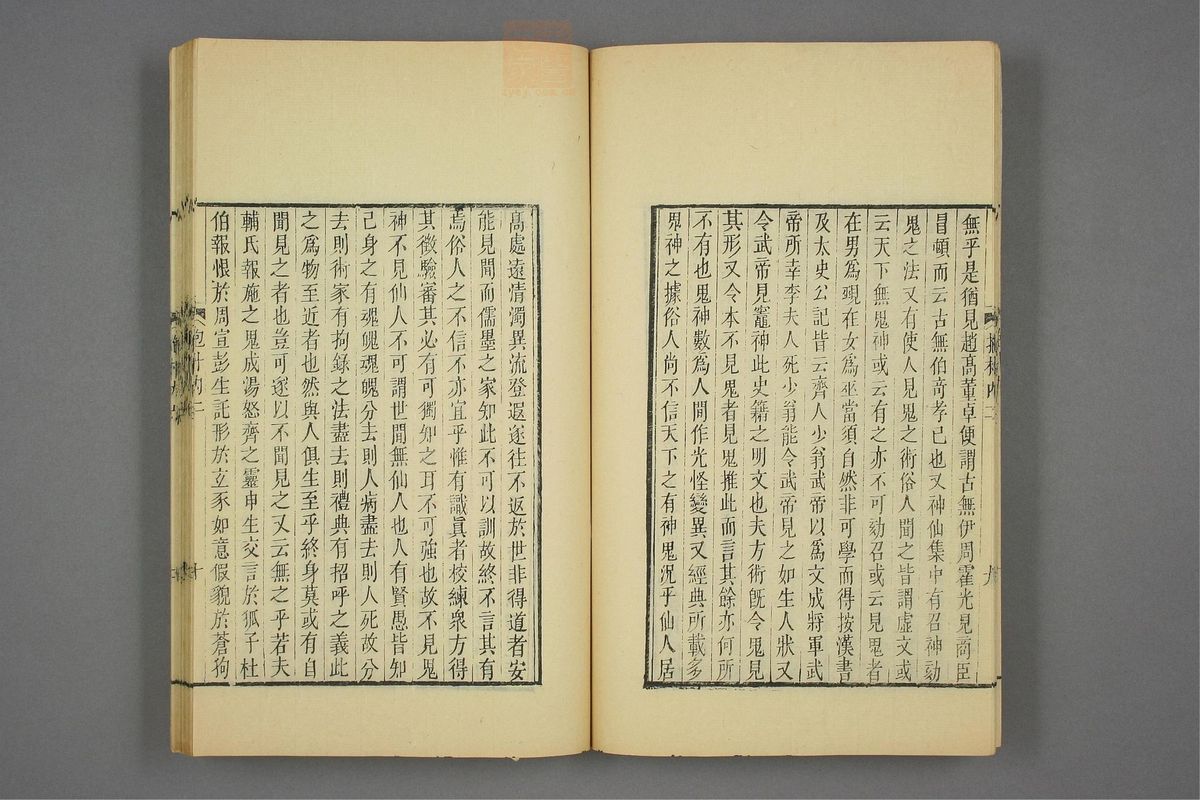 無乎是猶見趙髙董卓便謂古無伊周霍光見商臣
冒頓而云古無伯奇孝己也又神仙集中有召神劾
鬼之法又有使人見鬼之術俗人聞之皆謂虛文或
云天下無鬼神或云有之亦不可劾召或云見鬼者
在男爲覡在女爲巫當須自然非可學而得按漢書
及太史公記皆云齊人少翁武帝以爲文成將軍武
帝所幸李夫人死少翁能令武帝見之如生人狀又
令武帝見竈神此史籍之明文也夫方術旣令鬼見
其形又令本不見鬼者見鬼推此而言其餘亦何所
不有也鬼神數爲人間作光怪變異又經典所載多
鬼神之據俗人尚不信天下之有神鬼況乎仙人居
九
髙處遠情濁異流登遐遂往不返於世非得道者安
能見聞而儒墨之家知此不可以訓故終不言其有
焉俗人之不信不亦宜乎惟有識眞者校練衆方得
其徵驗審其必有可獨知之耳不可強也故不見鬼
神不見仙人不可謂世間無仙人也人有賢愚皆知
己身之有魂魄魂魄分去則人病盡去則人死故分
去則術家有拘錄之法盡去則禮典有招呼之義此
之爲物至近者也然與人俱生至乎終身莫或有自
聞見之者也豈可遂以不聞見之又云無之乎若夫
輔氏報施之鬼成湯怒齊之靈申生交言於狐子杜
伯報恨於周宣彭生託形於立豕如意假貌於蒼狗
十